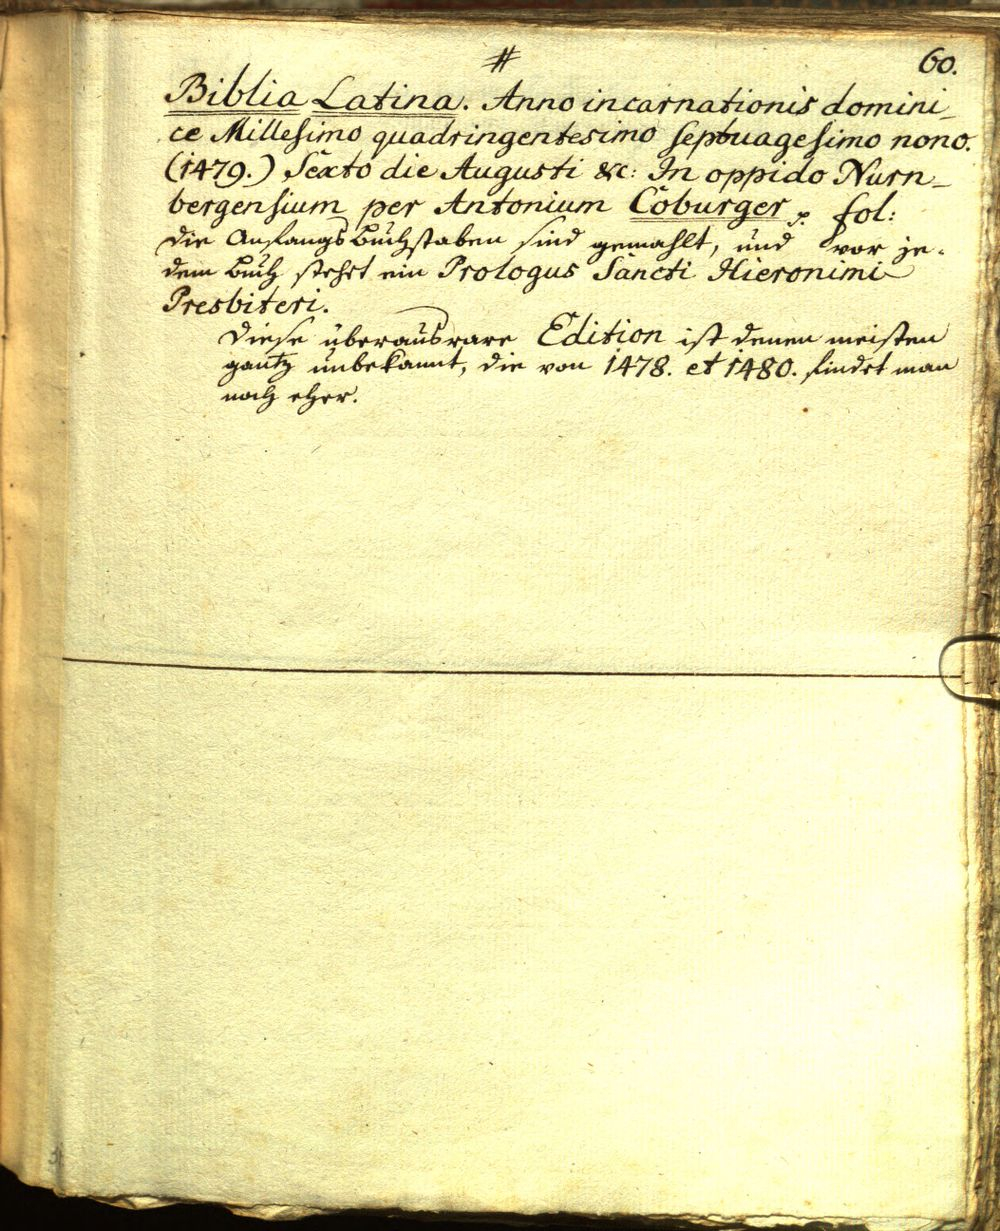 # 60.
Biblia Latina. Anno incarnationis domini_
ce Millesimo quadringentesimo septuagesimo nono.
(1479.) Sexto die Augusti &c: In oppido Nurn_
bergensium per Antonium Coburger p. fol:
die Anfangs Buchstaben sind gemahlt, und vor je-
dem Buch stehet ein Prologus Sancti Hieronimi
Presbiteri.
Diese überaus rare Edition ist denen meisten
gantz unbekannt, die von 1478. et 1480. findet man
noch eher.